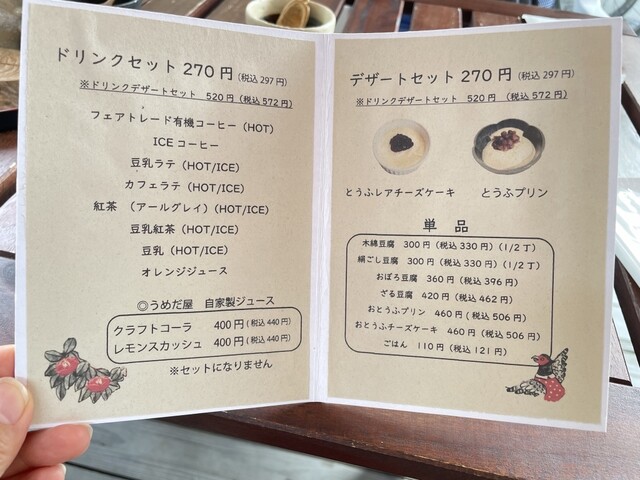 ドリンクセット 270円(税込 297円)
※ドリンクデザートセット 520円(税込 572円)
フェアトレード有機コーヒー(HOT)
ICEコーヒー
豆乳ラテ(HOT/ICE)
カフェラテ(HOT/ICE)
紅茶 (アールグレイ)(HOT/ICE)
豆乳紅茶(HOT/ICE)
豆乳(HOT/ICE)
オレンジジュース
◎うめだ屋 自家製ジュース
クラフトコーラ 400円(税込 440円)
レモンスカッシュ 400円(税込 440円)
※セットになりません
デザートセット 270円(税込 297円)
※ドリンクデザートセット 520円 (税込 572円)
とうふレアチーズケーキ とうふプリン
単 品
木綿豆腐 300円(税込 330円)(1/2丁)
絹ごし豆腐 300円(税込 330円)(1/2丁)
おぼろ豆腐 360円(税込 396円)
ざる豆腐 420円(税込 462円)
おとうふプリン 460円(税込 506円)
おとうふチーズケーキ 460円(税込 506円)
ごはん 110円(税込 121円)